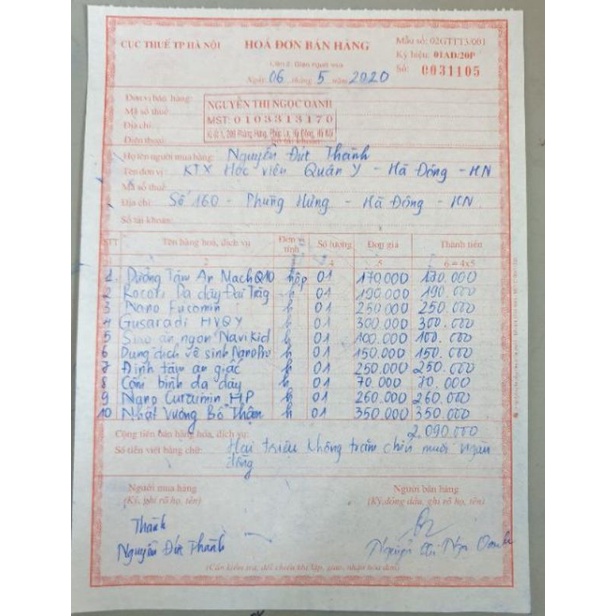 CỤC THUẾ TP HÀ NỘI
HOÁ ĐƠN BÁN HÀNG
Mẫu số: 02GTTT3/001
Ký hiệu: 01AD/20P
Liên 2: Giao người mua
Số: 0031105
Ngày 06 tháng 5 năm 2020
Đơn vị bán hàng:
NGUYỄN THỊ NGỌC OANH
Mã số thuế:
MST: 0103313170
Địa chỉ:
Ki ốt 1, 209 Phùng Hưng, Phúc La, Hà Đông, Hà Nội
Điện thoại:
Họ tên người mua hàng: Nguyễn Đức Thành
Tên đơn vị KTX Học viện Quân Y - Hà Đông - HN
Mã số thuế:
Địa chỉ: Số 160 - Phùng Hưng - Hà Đông - HN
Số tài khoản:
STT Tên hàng hoá, dịch vụ Đơn vị tính Số lượng Đơn giá Thành tiền
2 4 5 6 = 4x5
1 Dưỡng Tâm An Mạch Q10 hộp 01 170.000 170.000
2 Dạ dày 01 190.000 190.000
3 Nano Fucomin h 01 250.000 250.000
4 Gusaradi HVQY h 01 300.000 300.000
5 Siro ăn ngon NaviKid h 01 100.000 100.000
6 Dung dịch vệ sinh NanoPro h 01 150.000 150.000
7 Định tâm an giấc h 01 250.000 250.000
8 Cốm bình dạ dày h 01 70.000 70.000
9 Nano Curcumin HP h 01 260.000 260.000
10 Nhật Vương Bổ Thận h 01 350.000 350.000
Cộng tiền bán hàng hóa, dịch vụ: 2.090.000
Số tiền viết bằng chữ: Hai triệu không trăm chín mươi ngàn
đồng
Người mua hàng
Người bán hàng
(Ký, ghi rõ họ, tên)
(Ký, đóng dấu, ghi rõ họ, tên)
Thành
Nguyễn Đức Thành
Nguyễn Thị Ngọc Oanh
(Cần kiểm tra, đối chiếu khi lập, giao, nhận hóa đơn)